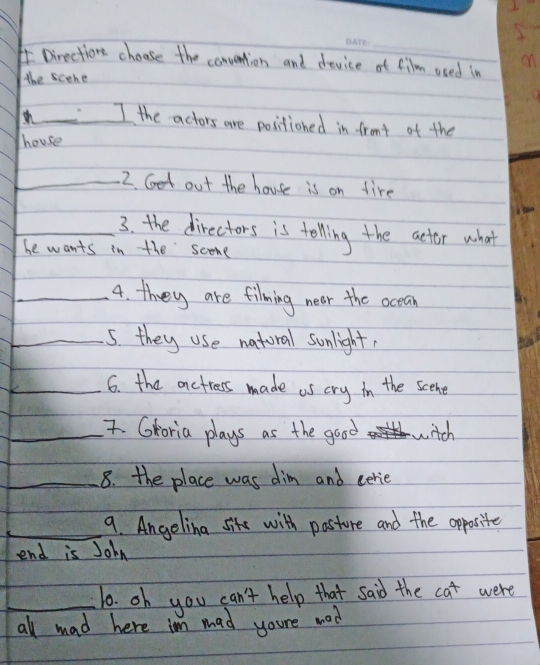 DATE:
I Directions choose the convention and device of film used in
the scene
1 the actors are positioned in front of the
house
2. Get out the house is on fire
3. the directors is telling the actor what
he wants in the scene
4. they are filming near the ocean
5. they use natural sunlight.
6. the actress made us cry in the scene
7. Gloria plays as the good witch
8. the place was dim and eerie
9. Angelina sits with posture and the opposite
end is John
10. oh you can't help that said the cat were
all mad here im mad youre mad